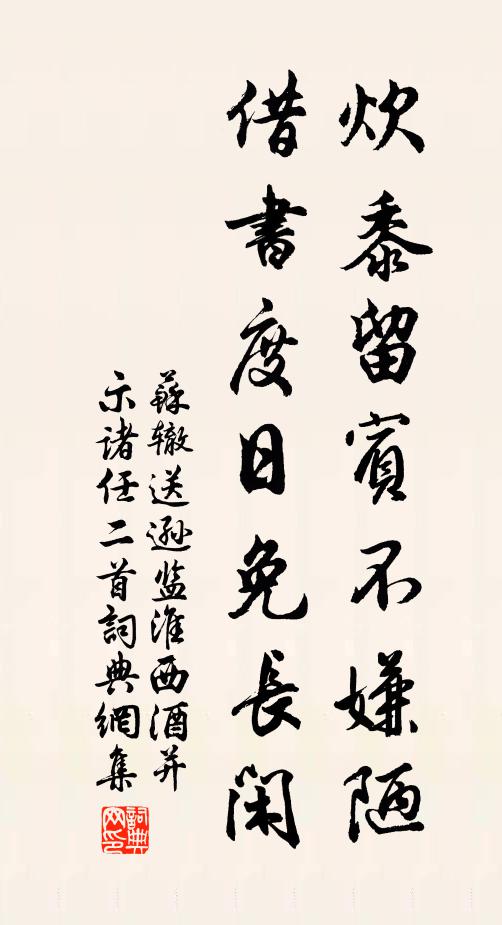 炊黍留賓不嫌陋
借書度日免長閑
蘇辙送遜监淮西酒并
示诸任二首詞典網集
詞典网印